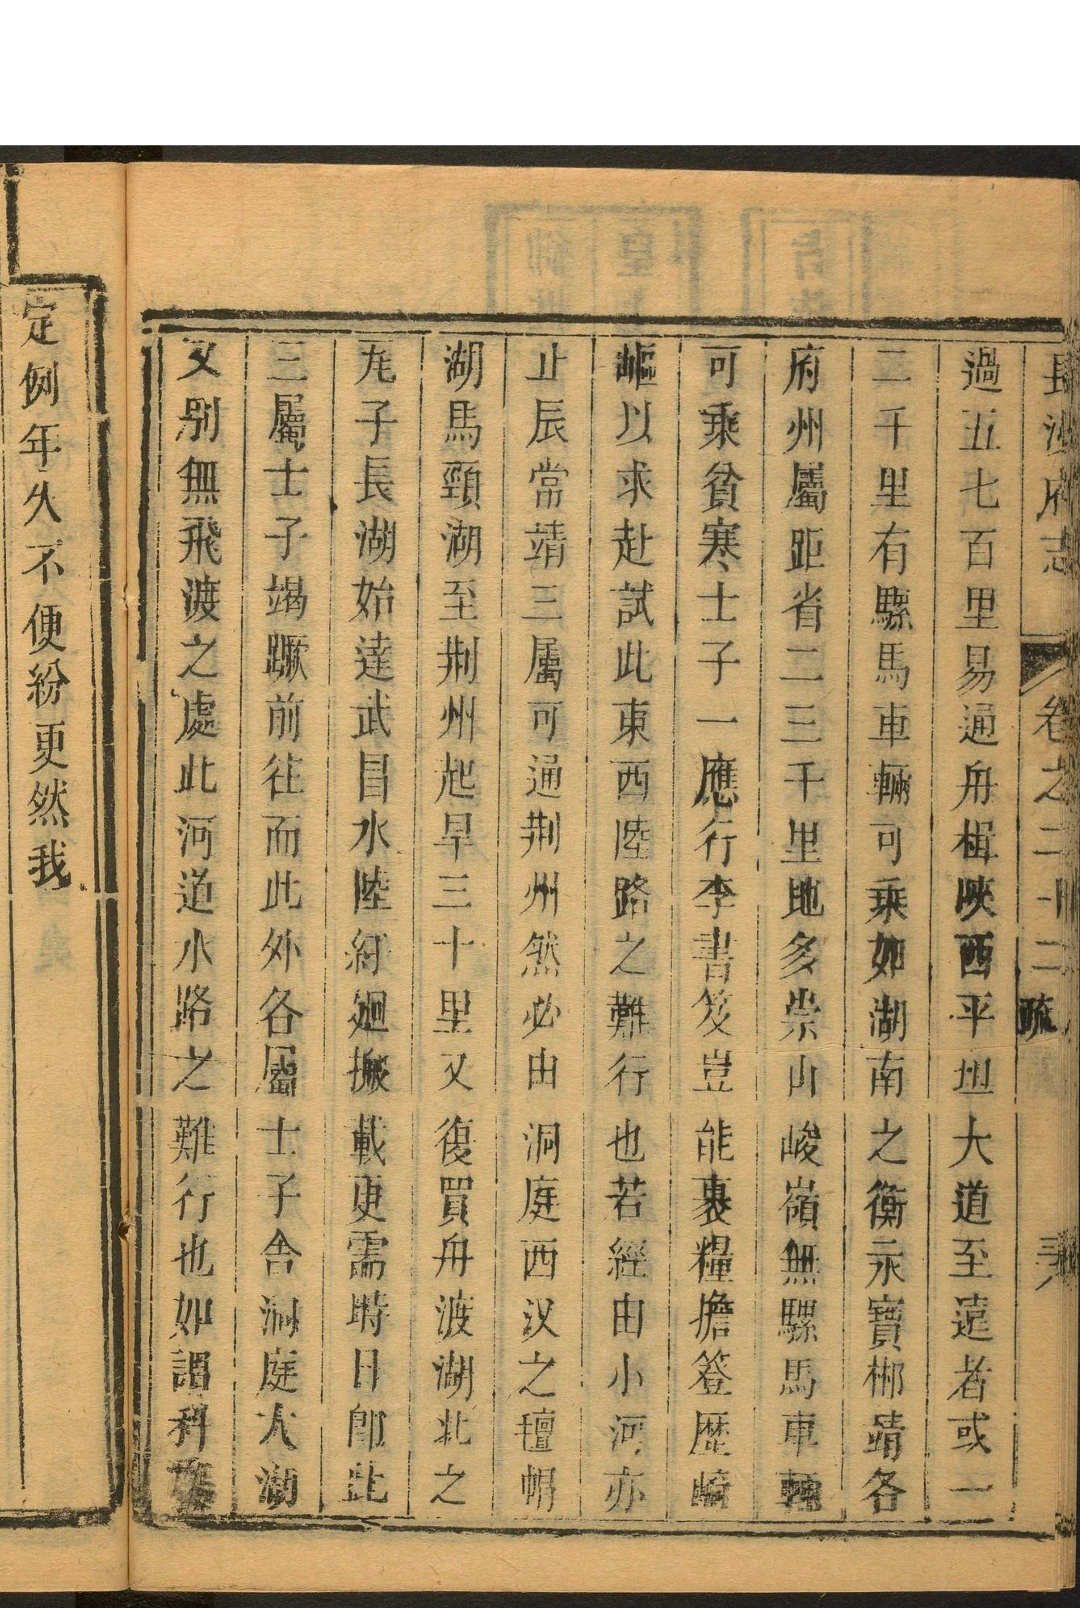 長沙府志
卷之二十二
疏
過五七百里易通舟楫陝西平坦大道至遠者或一
二千里有騾馬車輛可乘如湖南之衡永寶郴靖各
府州屬距省二三千里地多崇山峻嶺無騾馬車輛
可乘貧寒士子一應行李書笈豈能裹糧擔簦歷﨑
嶇以求赴試此東西陸路之難行也若經由小河亦
止辰常靖三屬可通荆州然必由洞庭西汊之氊帽
湖馬頸湖至荆州起旱三十里又復買舟渡湖北之
尨子長湖始達武昌水陸紆廻搬載更需時日卽此
三屬士子竭蹶前往而此外各屬士子舍洞庭大湖
又別無飛渡之處此河道水路之難行也如謂科
定例年久不便紛更然我